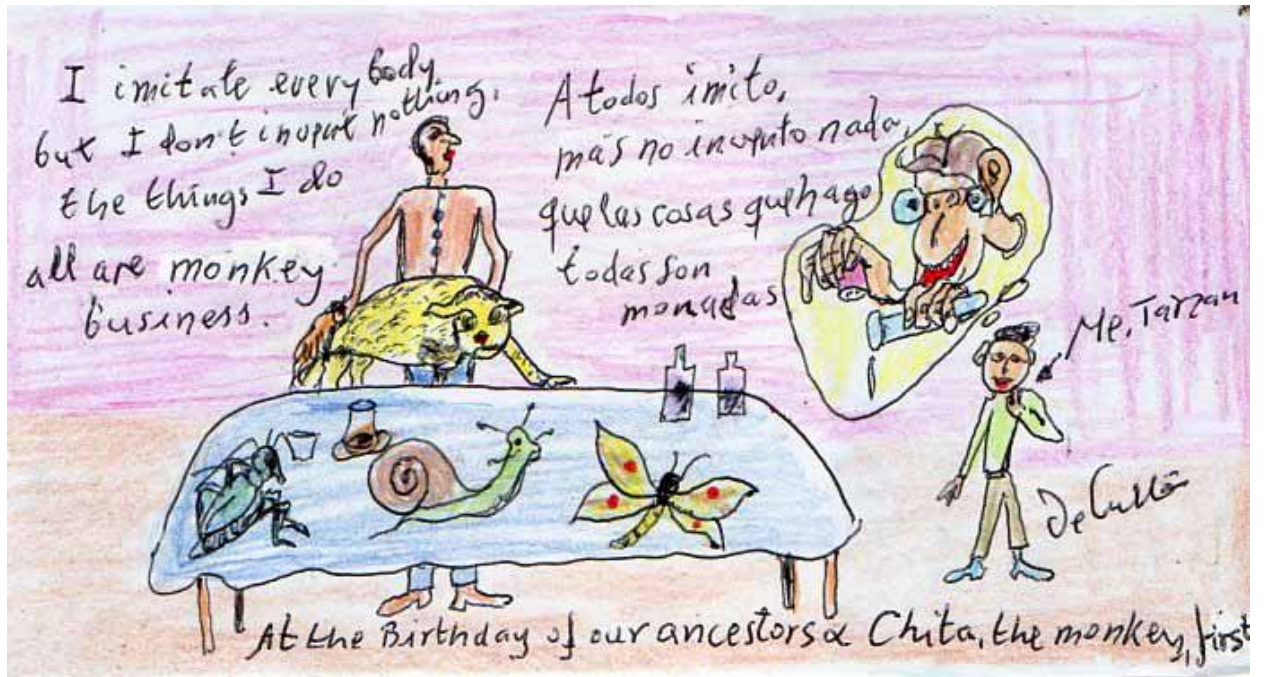 I imitate every body,
but I don't invent nothing,
the things I do
all are monkey
business.
A todos imito,
más no invento nada,
que las cosas que hago
todas son
monadas
Me, Tarzan
At the Birthday of our ancestors & Chita, the monkey, first